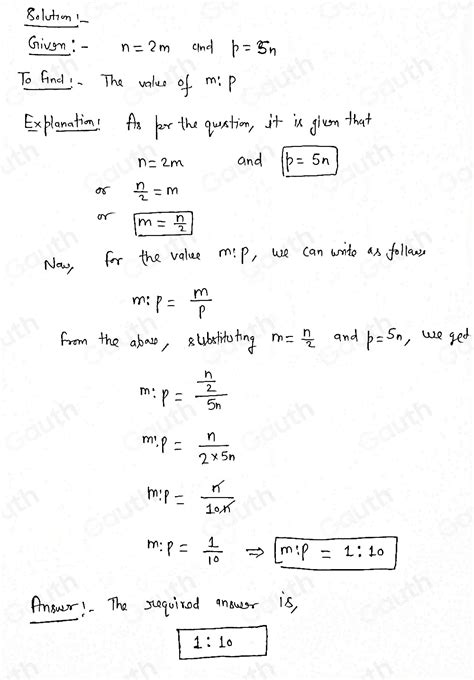 Solution:-
Given:- n = 2m and p = 5n
To find:- The value of m:p
Explanation: As per the question, it is given that
n = 2m and p = 5n
or n/2 = m
or m = n/2
Now, for the value m:p, we can write as follows
m:p = m/p
from the above, substituting m = n/2 and p = 5n, we get
m:p = (n/2)/5n
m:p = n/(2×5n)
m:p = n/10n
m:p = 1/10 ⇒ m:p = 1:10
Answer:- The required answer is,
1:10